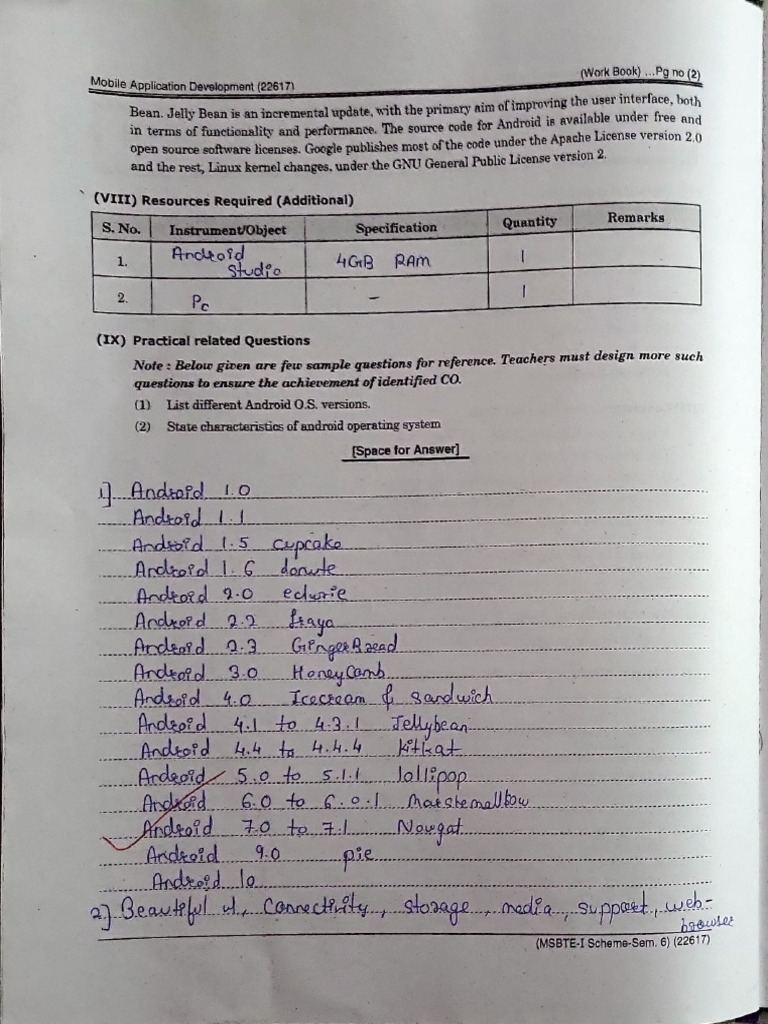 Mobile Application Development (22617) (Work Book) ...Pg no (2)
Bean. Jelly Bean is an incremental update, with the primary aim of improving the user interface, both
in terms of functionality and performance. The source code for Android is available under free and
open source software licenses. Google publishes most of the code under the Apache License version 2.0
and the rest, Linux kernel changes, under the GNU General Public License version 2.
(VIII) Resources Required (Additional)
S. No. Instrument/Object Specification Quantity Remarks
1. Android Studio 4GB RAM 1
2. Pc - 1
(IX) Practical related Questions
Note : Below given are few sample questions for reference. Teachers must design more such
questions to ensure the achievement of identified CO.
(1) List different Android O.S. versions.
(2) State characteristics of android operating system
[Space for Answer]
1] Android 1.0
Android 1.1
Android 1.5 cupcake
Android 1.6 donute
Android 2.0 eclurie
Android 2.2 fraya
Android 2.3 GingerBread
Android 3.0 HoneyComb
Android 4.0 Icecream & sandwich
Android 4.1 to 4.3.1 Jellybean
Android 4.4 to 4.4.4 kitkat
Android 5.0 to 5.1.1 lollipop
Android 6.0 to 6.0.1 Marshemallow
Android 7.0 to 7.1 Nougat
Android 9.0 pie
Android 10
2] Beautiful UI, Connectivity, storage, media, support, web-
browser
(MSBTE-I Scheme-Sem. 6) (22617)